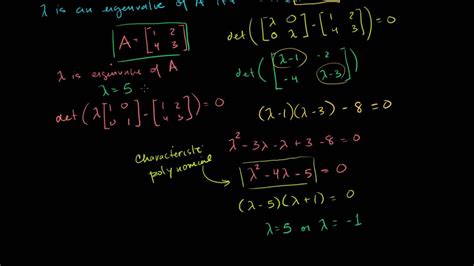 λ is an eigenvalue of A iff
A = [1 2; 4 3]
λ is eigenvalue of A
λ = 5
det(λ[1 0; 0 1] - [1 2; 4 3]) = 0
det([λ 0; 0 λ] - [1 2; 4 3]) = 0
det([λ-1 -2; -4 λ-3]) = 0
(λ-1)(λ-3) - 8 = 0
λ² - 3λ - λ + 3 - 8 = 0
characteristic
polynomial
λ² - 4λ - 5 = 0
(λ-5)(λ+1) = 0
λ=5 or λ = -1